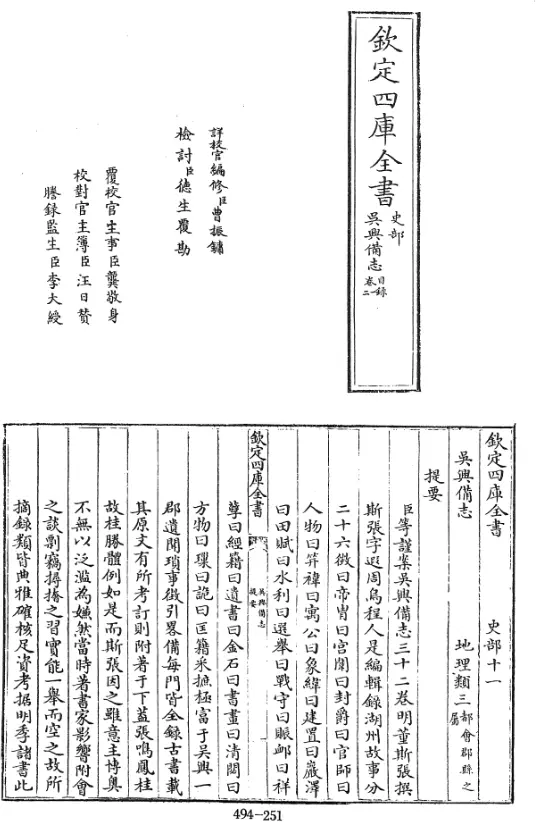 欽定四庫全書
史部
吳興備志
目錄
卷一
二
詳校官編修臣曹振鏞
檢討臣德生覆勘
覆校官主事臣龔敬身
校對官主簿臣汪日贊
謄錄監生臣李大綬
欽定四庫全書
史部十一
吳興備志
地理類三
都會郡縣之
屬
提要
臣等謹案吳興備志三十二卷明董斯張撰
斯張字遐周烏程人是編輯錄湖州故事分
二十六徵曰帝胄曰宮闈曰封爵曰官師曰
人物曰笄褘曰寓公曰象緯曰建置曰巖澤
曰田賦曰水利曰選舉曰戰守曰賑卹曰祥
欽定四庫全書
吳興備志
提要
孽曰經籍曰遺書曰金石曰書畫曰清閟曰
方物曰璅曰詭曰匡籍采摭極富于吳興一
郡遺聞瑣事徵引畧備每門皆全錄古書載
其原文有所考訂則附著于下蓋張鳴鳳桂
故桂勝體例如是而斯張因之雖意主博奧
不無以泛濫為嫌然當時著書家影響附會
之談剽竊撏撦之習實能一舉而空之故所
摘錄類皆典雅確核足資考据明季諸書此
494-251